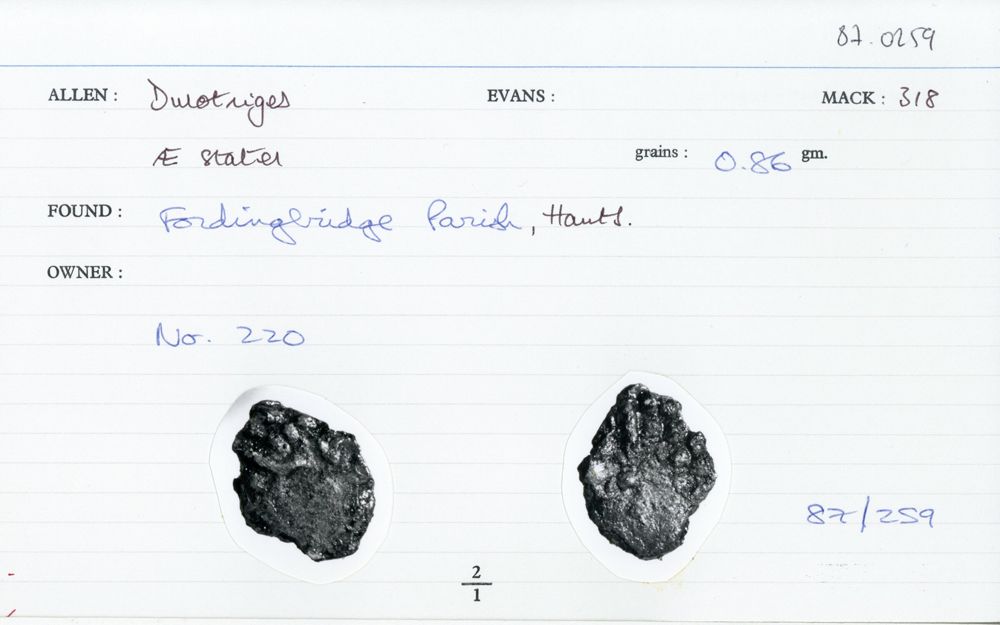 87.0259
ALLEN : Durotriges EVANS : MACK : 318
Æ stater grains : 0.86 gm.
FOUND : Fordingbridge Parish, Hants.
OWNER :
No. 220
87/259
2
1